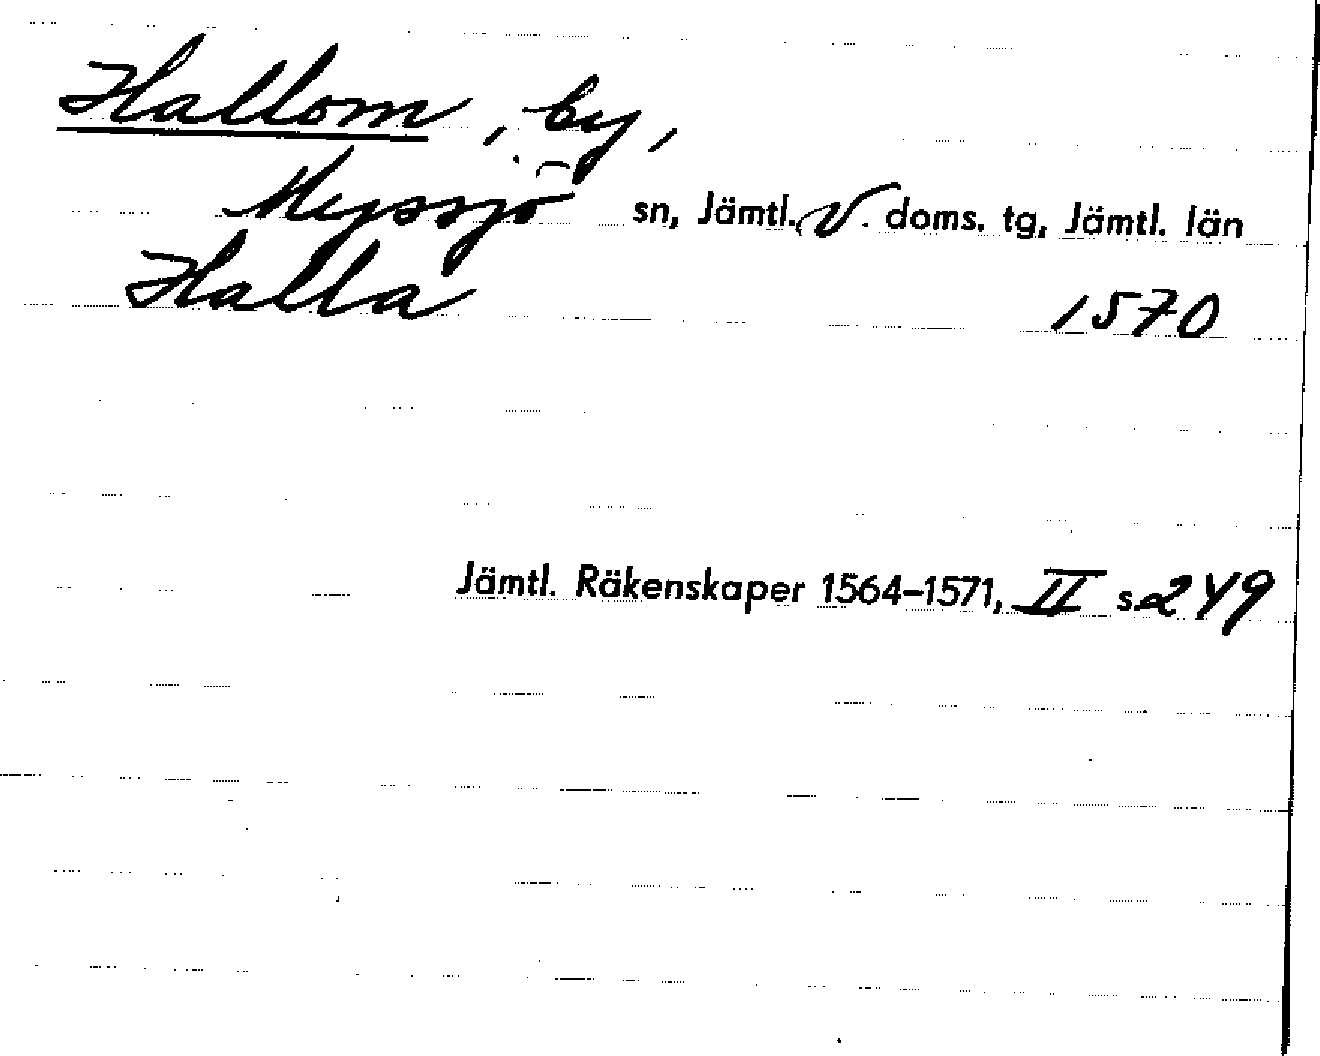 Hallom, by,
Myssjö sn, Jämtl. V. doms. tg, Jämtl. län
Halla 1570
Jämtl. Räkenskaper 1564–1571, II s. 249